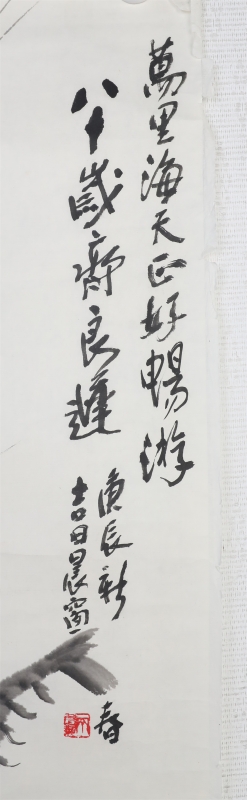 萬里海天正好暢游
八十歲齊良遲
庚辰新春
吉日晨窗